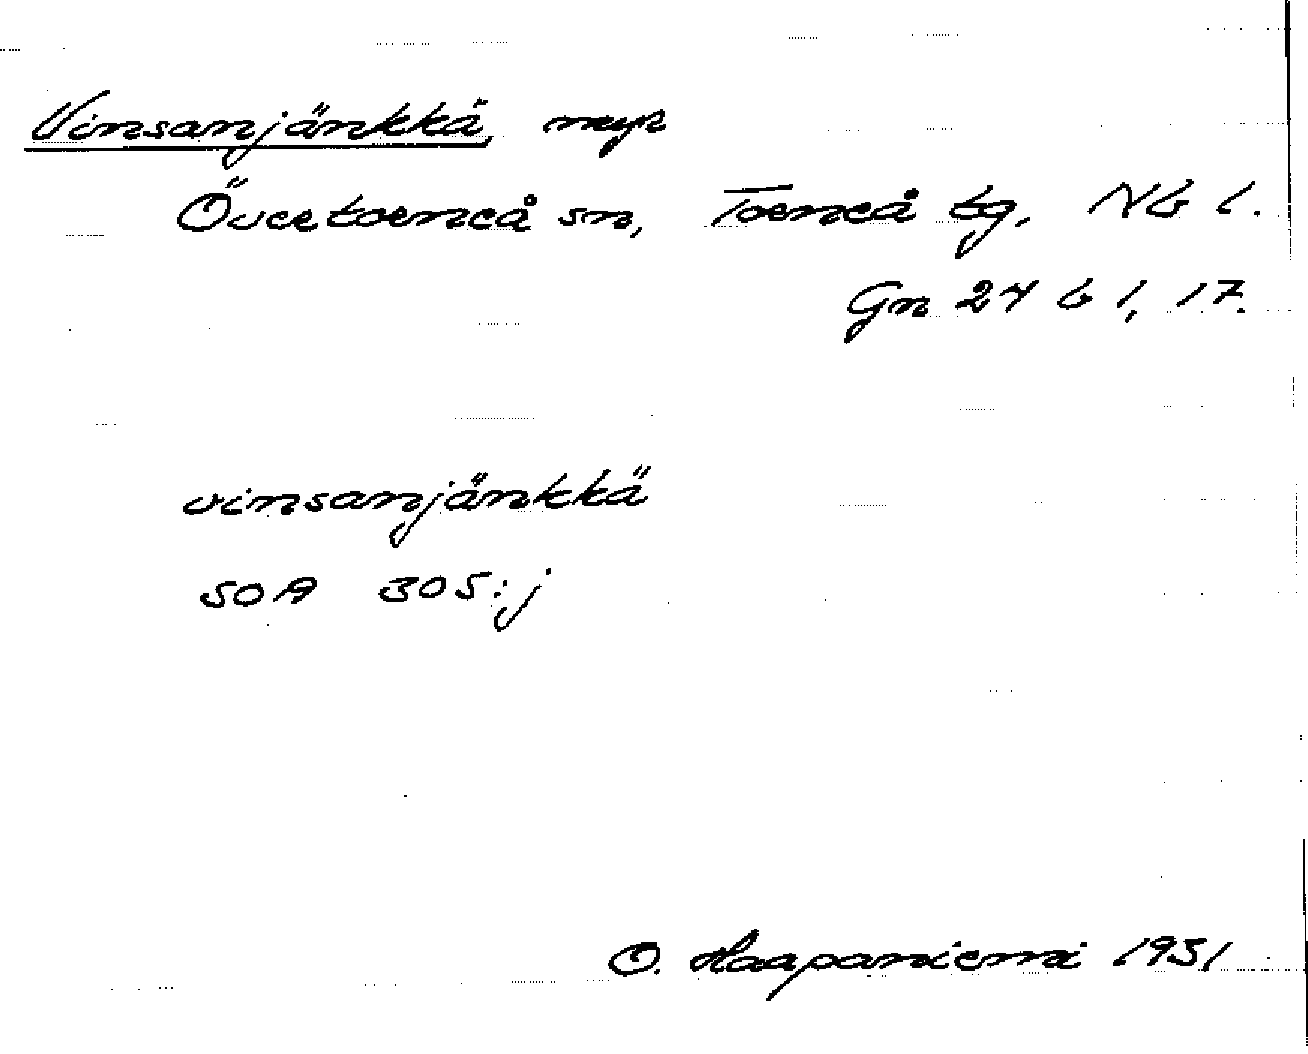 Vinsanjänkkä, myr
Övertorneå sn, Torneå tg, Nb l.
Gn 24 b 1, 17.
vinsanjänkkä
SOA 305:j
O. Haapaniemi 1931